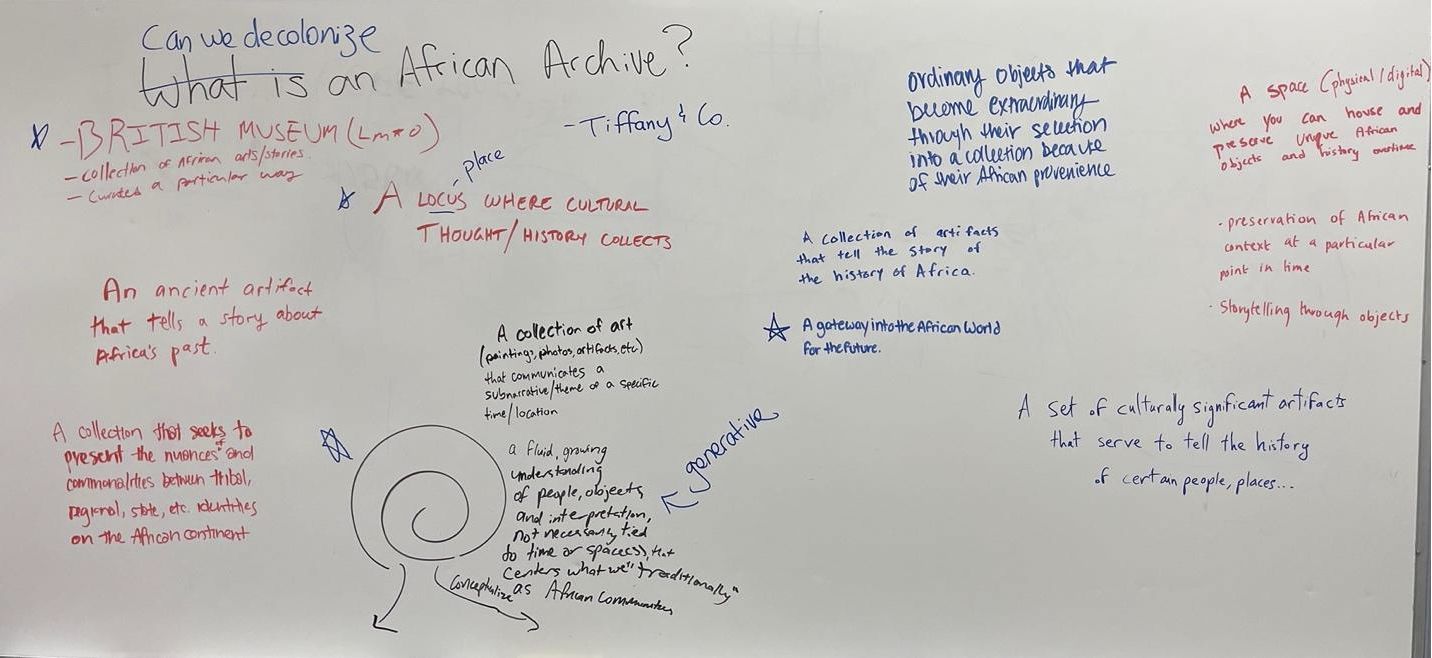 Can we decolonize
What is an African Archive?
- BRITISH MUSEUM (Lm*o)
- collection of African arts/stories.
- Curated a particular way
- Tiffany & Co.
place
A LOCUS WHERE CULTURAL
THOUGHT/HISTORY COLLECTS
An ancient artifact
that tells a story about
Africa's past.
A collection that seeks to
present the nuances of and
commonalities between tribal,
regional, state, etc. identities
on the African continent
A collection of art
(paintings, photos, artifacts, etc)
that communicates a
subnarrative/theme of a specific
time/location
a fluid, growing
understanding
of people, objects,
and interpretation,
not necessarily tied
to time or space(s), that
centers what we "traditionally"
conceptualize as African communities
generative
ordinary objects that
become extraordinary
through their selection
into a collection because
of their African provenience
A collection of artifacts
that tell the story of
the history of Africa.
A gateway into the African World
for the future.
A space (physical/digital)
where you can house and
preserve unique African
objects and history overtime
- preservation of African
context at a particular
point in time
- Storytelling through objects
A set of culturally significant artifacts
that serve to tell the history
of certain people, places...